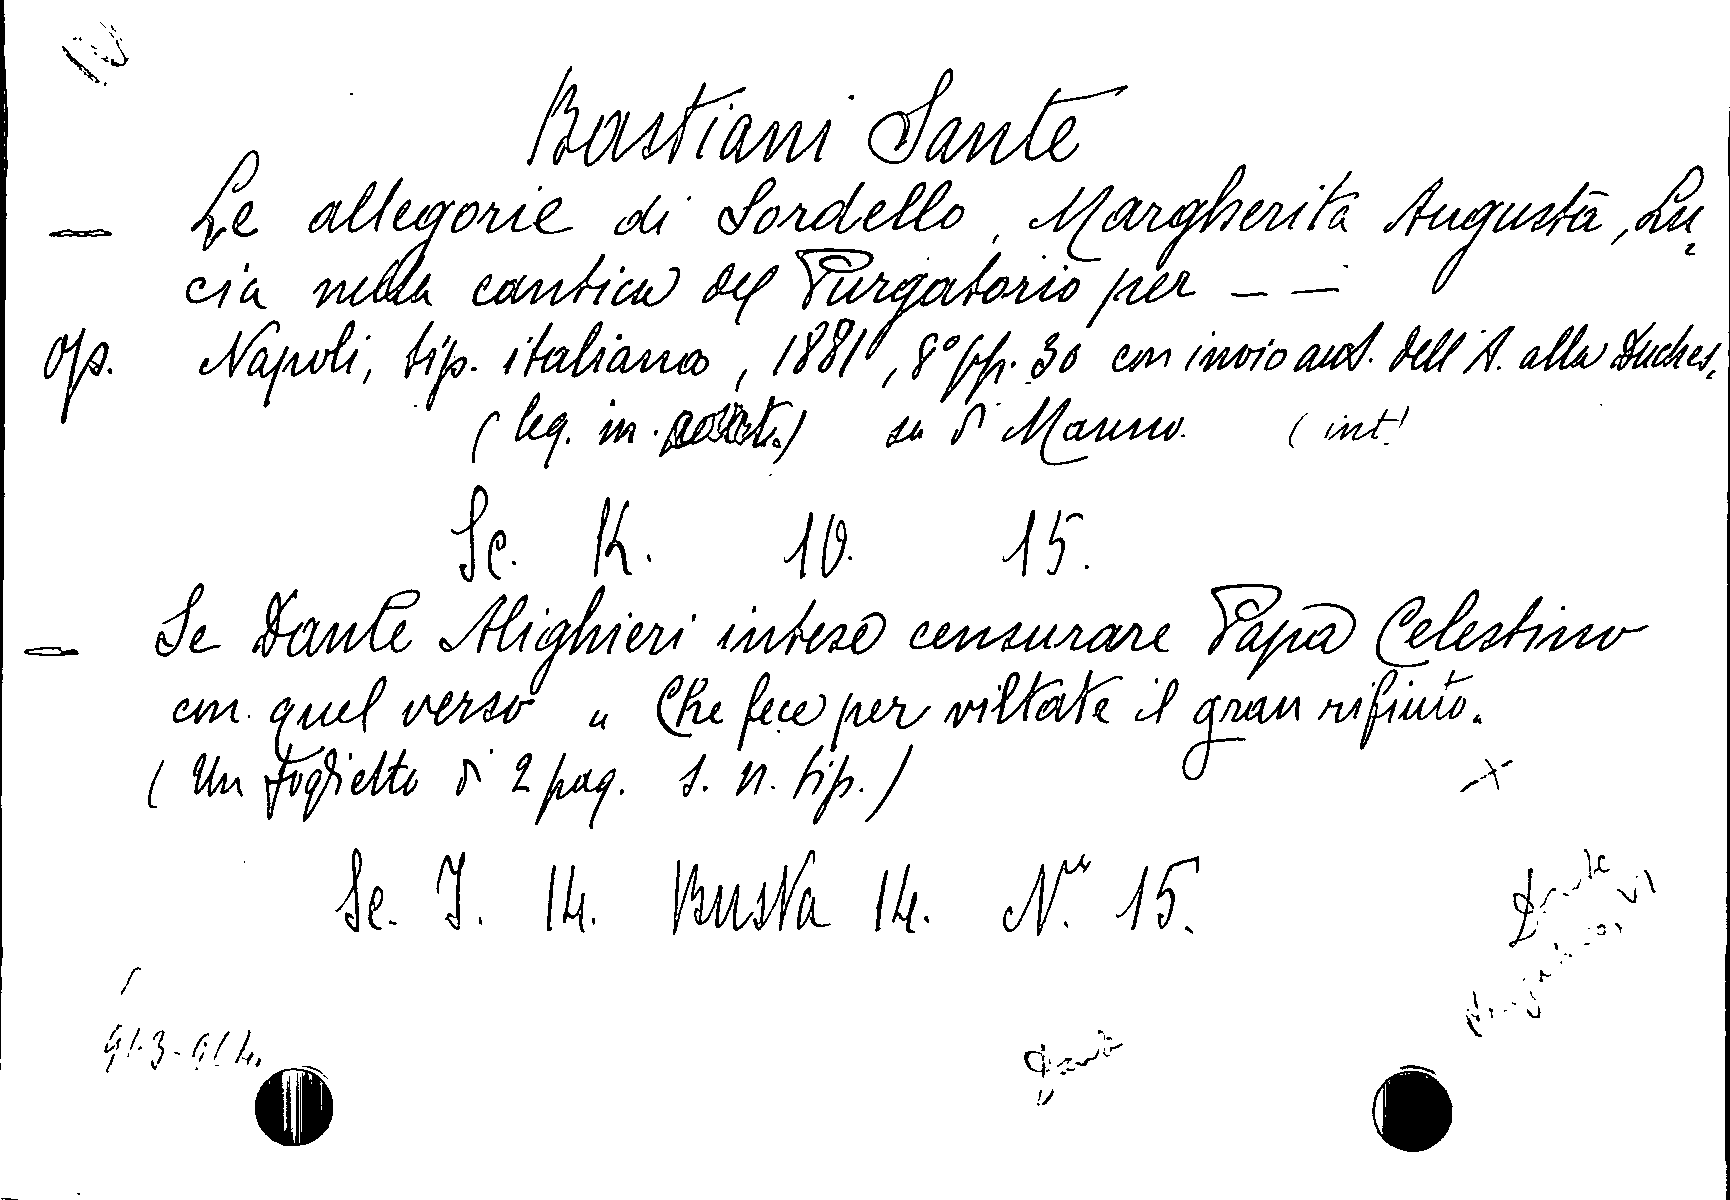 Bastiani Sante
— Le allegorie di Sordello, Margherita Augusta, Lu-
cia nella cantica del Purgatorio per — —
Op. Napoli, tip. italiana, 1881, 8° pp. 30 con invio aut. dell'A. alla Duches.
(leg. in ) sa di (int!
Sc. K. 10. 15.
— Se Dante Alighieri intese censurare Papa Celestino
con quel verso " Che fece per viltate il gran rifiuto.
(Un foglietto di 2 pag. s. n. tip.)
x
Sc. J. 14. Busta 14. N.° 15.
Dante
Purgatorio, VI
Dante